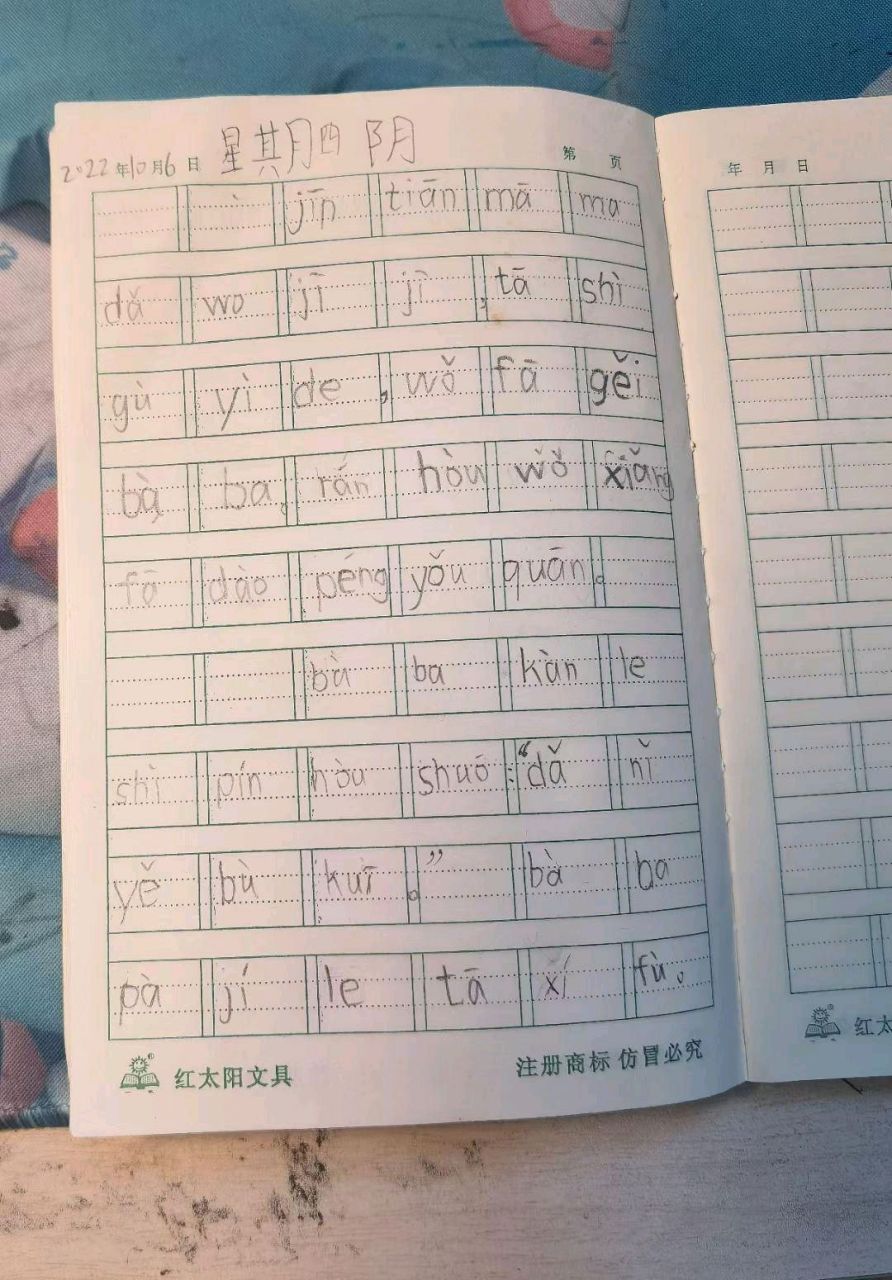 2022年10月6日 星期四 阴 第 页
jīn tiān mā ma
dǎ wo jī jī, tā shì
gù yì de, wǒ fā gěi
bà ba, rán hòu wǒ xiǎng
fā dào péng yǒu quān。
bà ba kàn le
shì pín hòu shuō:“dǎ nǐ
yě bù kuī。” bà ba
pà jí le tā xí fù。
红太阳文具 注册商标 仿冒必究
年 月 日
红太